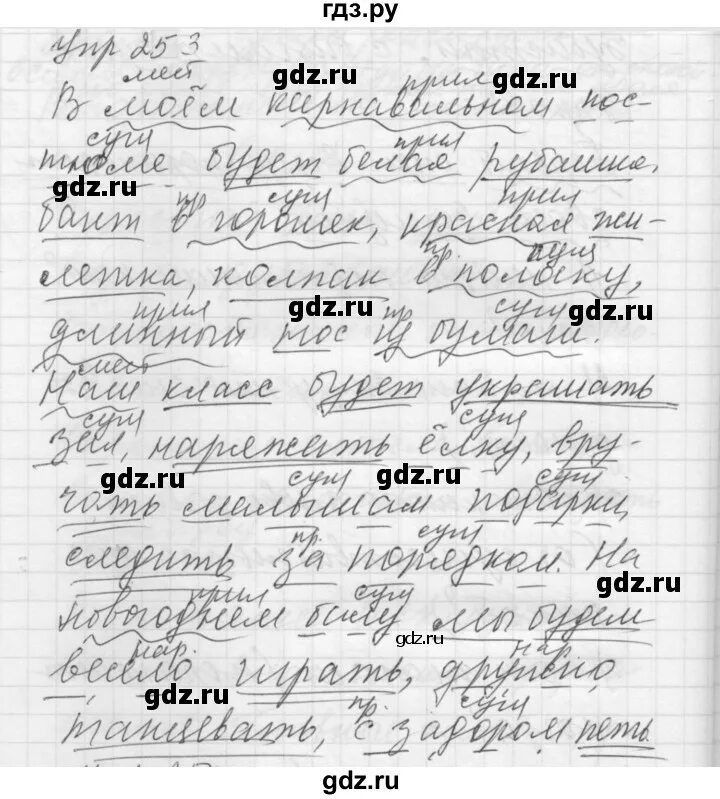 гдз.ру
Упр 253
мест прил
В моём карнавальном кос-
сущ прил
тюме будет белая рубашка,
пр сущ прил
бант в горошек, красная жи-
пр. сущ
летка, колпак в полоску,
прил пр сущ
длинный нос из бумаги.
мест
Наш класс будет украшать
сущ сущ
зал, наряжать ёлку, вру-
сущ сущ.
чать малышам подарки,
пр. сущ
следить за порядком. На
прил сущ
новогоднем балу мы будем
нар. нар.
весело играть, дружно
пр. сущ
танцевать, с задором петь.
gdz.ru
gdz.ru
gdz.ru
gdz.ru
gdz.ru
gdz.ru
gdz.ru
gdz.ru
gdz.ru
gdz.ru
gdz.ru
gdz.ru
gdz.ru